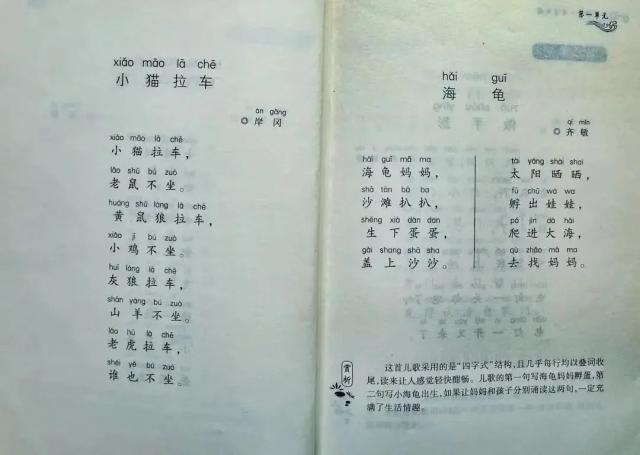 xiǎo māo lā chē
小猫拉车
àn gāng
◎岸冈
xiǎo māo lā chē
小猫拉车，
lǎo shǔ bú zuò
老鼠不坐。
huáng shǔ láng lā chē
黄鼠狼拉车，
xiǎo jī bú zuò
小鸡不坐。
huī láng lā chē
灰狼拉车，
shān yáng bú zuò
山羊不坐。
lǎo hǔ lā chē
老虎拉车，
shéi yě bú zuò
谁也不坐。
第一单元
hǎi guī
海龟
qí mǐn
◎齐敏
hǎi guī mā ma
海龟妈妈，
shā tān bā ba
沙滩扒扒，
shēng xià dàn dan
生下蛋蛋，
gài shang shā sha
盖上沙沙。
tài yáng shài shai
太阳晒晒，
fū chū wá wa
孵出娃娃，
pá jìn dà hǎi
爬进大海，
qù zhǎo mā ma
去找妈妈。
赏析
这首儿歌采用的是“四字式”结构，且几乎每行均以叠词收
尾，读来让人感觉轻快酣畅。儿歌的第一句写海龟妈妈孵蛋，第
二句写小海龟出生，如果让妈妈和孩子分别诵读这两句，一定充
满了生活情趣。